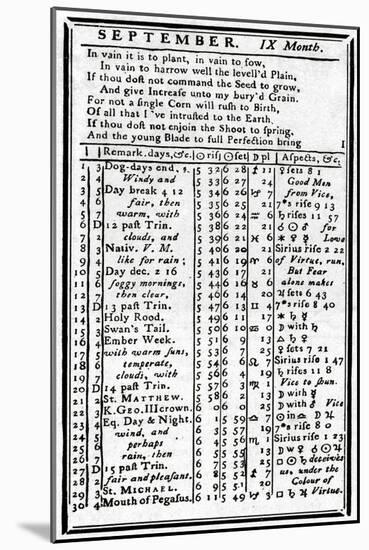 SEPTEMBER. IX Month.
In vain it is to plant, in vain to ſow,
In vain to harrow well the levell'd Plain,
If thou doſt not command the Seed to grow,
And give Increaſe unto my bury'd Grain.
For not a ſingle Corn will ruſh to Birth,
Of all that I've intruſted to the Earth,
If thou doſt not enjoin the Shoot to ſpring,
And the young Blade to full Perfection bring
Remark. days, &c. ☉ riſ ☉ ſet ☽ pl Aſpects, &c.
1 3 Dog-days end, 5 32 6 28 11 ſets 8 1
2 4 Windy and 5 33 6 27 24 Good Men
3 5 Day break 4 12 5 34 6 26 from Vice,
4 6 fair, then 5 35 6 25 7*s riſe 9 13
5 7 warm, with 5 36 6 24 ♄ riſes 11 57
6 D 12 paſt Trin. 5 38 6 22 for
7 2 clouds, and 5 39 6 21 Love
8 3 Nativ. V. M. 5 40 6 20 Sirius riſe 2 22
9 4 like for rain; 5 41 6 19 of Virtue, run,
10 5 Day dec. 2 16 5 43 6 17 But Fear
11 6 foggy mornings, 5 44 6 16 alone makes
12 7 then clear, 5 46 6 14 20 ♃ ſets 6 43
13 D 13 paſt Trin. 5 47 6 13 4 7*s riſe 8 40
14 2 Holy Rood. 5 49 6 11 17
15 3 Swan's Tail. 5 50 6 10 ☽ with ♄
16 4 Ember Week. 5 51 6 9 13
17 5 with warm ſuns, 5 53 6 7 ſets 7 21
18 6 temperate, 5 54 6 6 7 Sirius riſe 1 47
19 7 clouds, with 5 56 6 4 19 ♄ riſes 11 8
20 D 14 paſt Trin. 5 57 6 3 1 Vice to ſhun.
21 2 St. MATTHEW. 5 58 6 2 ☽ with ♂
22 3 K. GEO. III crown. 6 0 6 0 ☽ with Vice
23 4 Eq. Day & Night. 6 1 5 59 7
24 5 wind, and 6 3 5 57 19 7*s riſe 8 0
25 6 perhaps 6 4 5 56 1 Sirius riſe 1 23
26 7 rain, then 6 5 5 55
27 D 15 paſt Trin. 6 7 5 53 deceives
28 2 fair and pleaſant. 6 8 5 52 us, under the
29 3 St. MICHAEL. 6 9 5 51 Colour of
30 4 Mouth of Pegaſus. 6 11 5 49 Virtue.